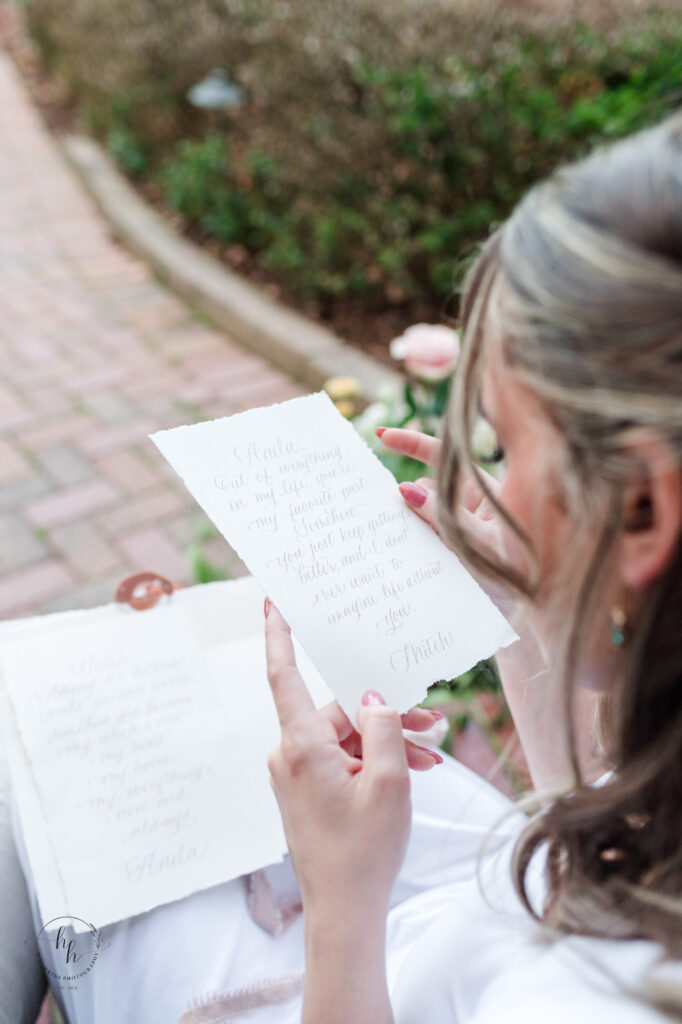 Anela,
Out of everything
in my life, you're
my favorite part.
Somehow
you just keep getting
better, and I don't
ever want to
imagine life without
you.
Mitch
Mitch
my whole
my heart
my home
my everything
now and
always
Anela
hh
PHOTOGRAPHY